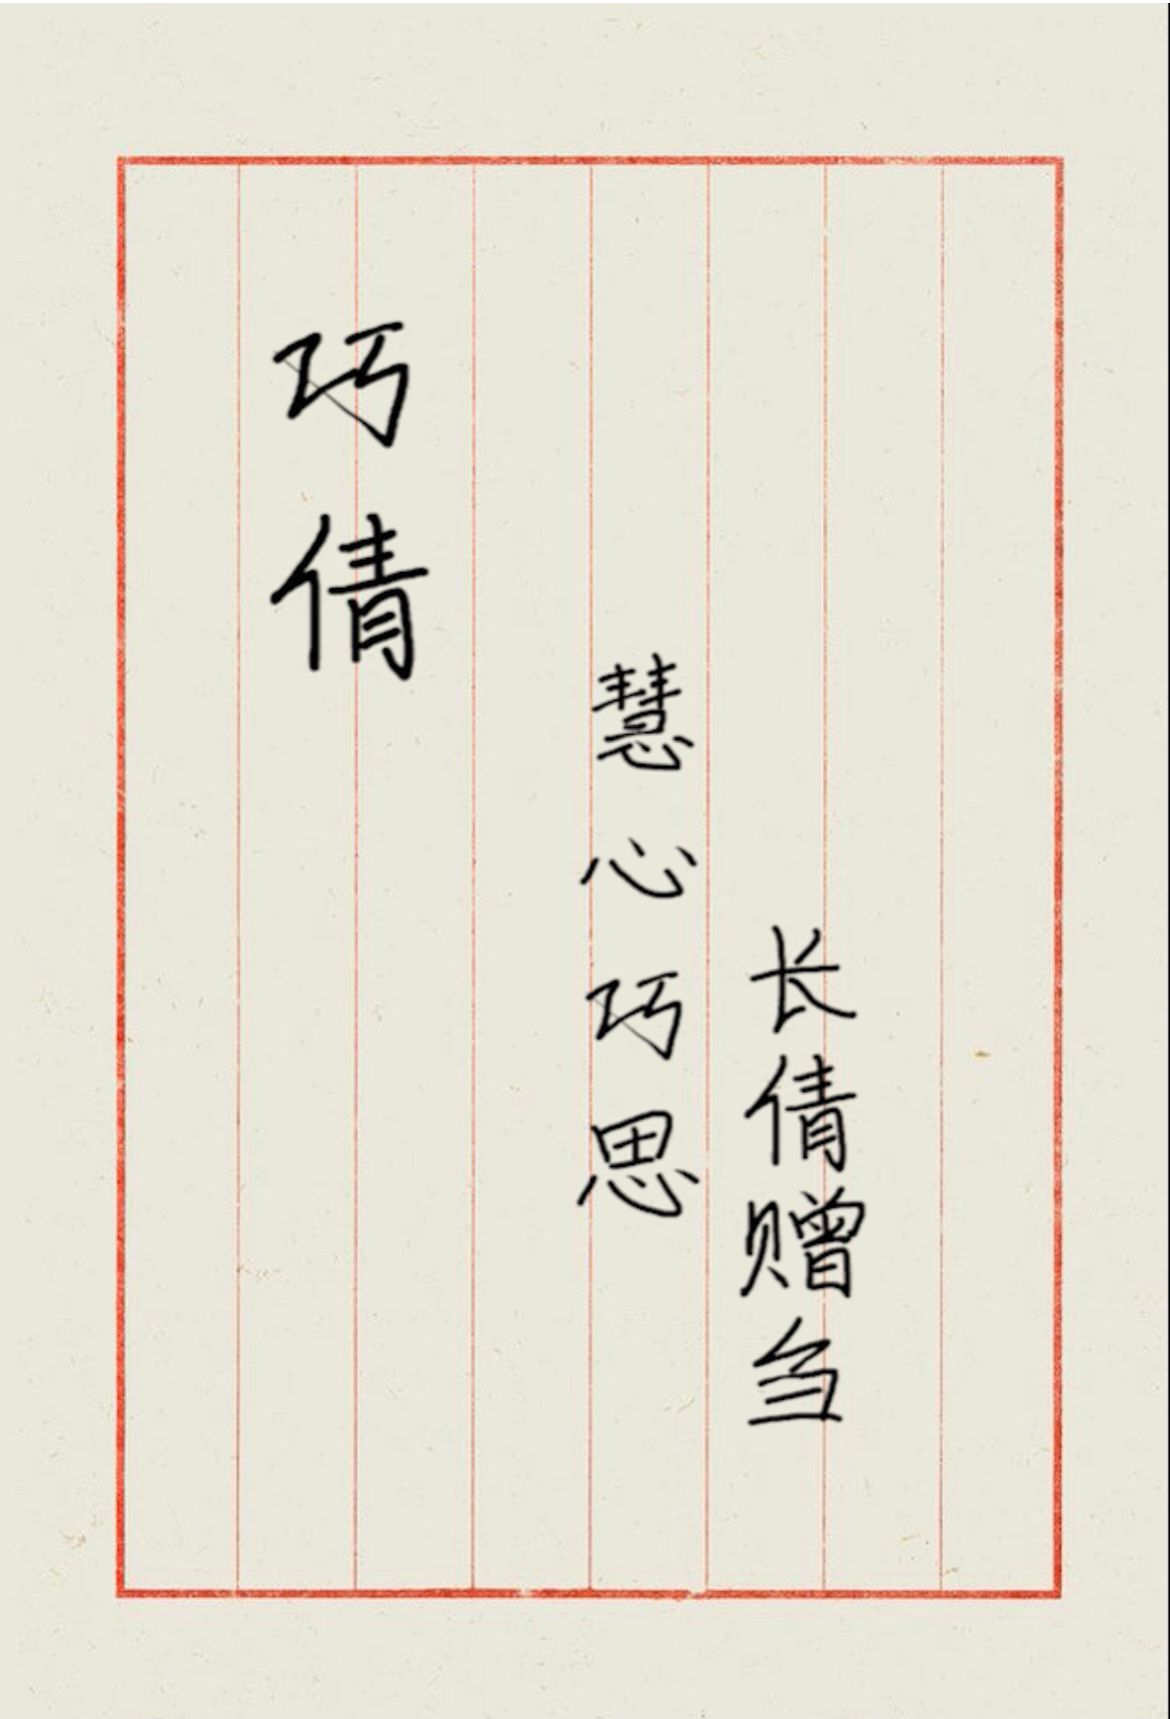 巧倩
慧心巧思
长倩赠刍